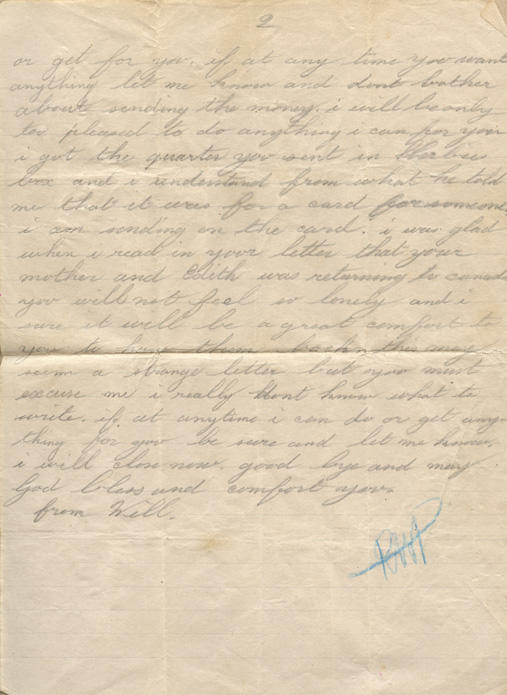 2
or get for you. if at any time you want
anything let me know and dont bother
about sending the money. i will be only
too pleased to do anything i can for you
i got the quarter you sent in
box and i understand from what he told
me that it was for a card for someone.
i am sending on the card. i was glad
when i read in your letter that your
mother and Edith was returning to canada
you will not feel so lonely and i
sure it will be a great comfort to
you to have them back this may
seem a strange letter but you must
excuse me i really dont know what to
write. if at anytime i can do or get any
thing for you be sure and let me know.
i will close now. good bye and may
God bless and comfort you.
from Will.